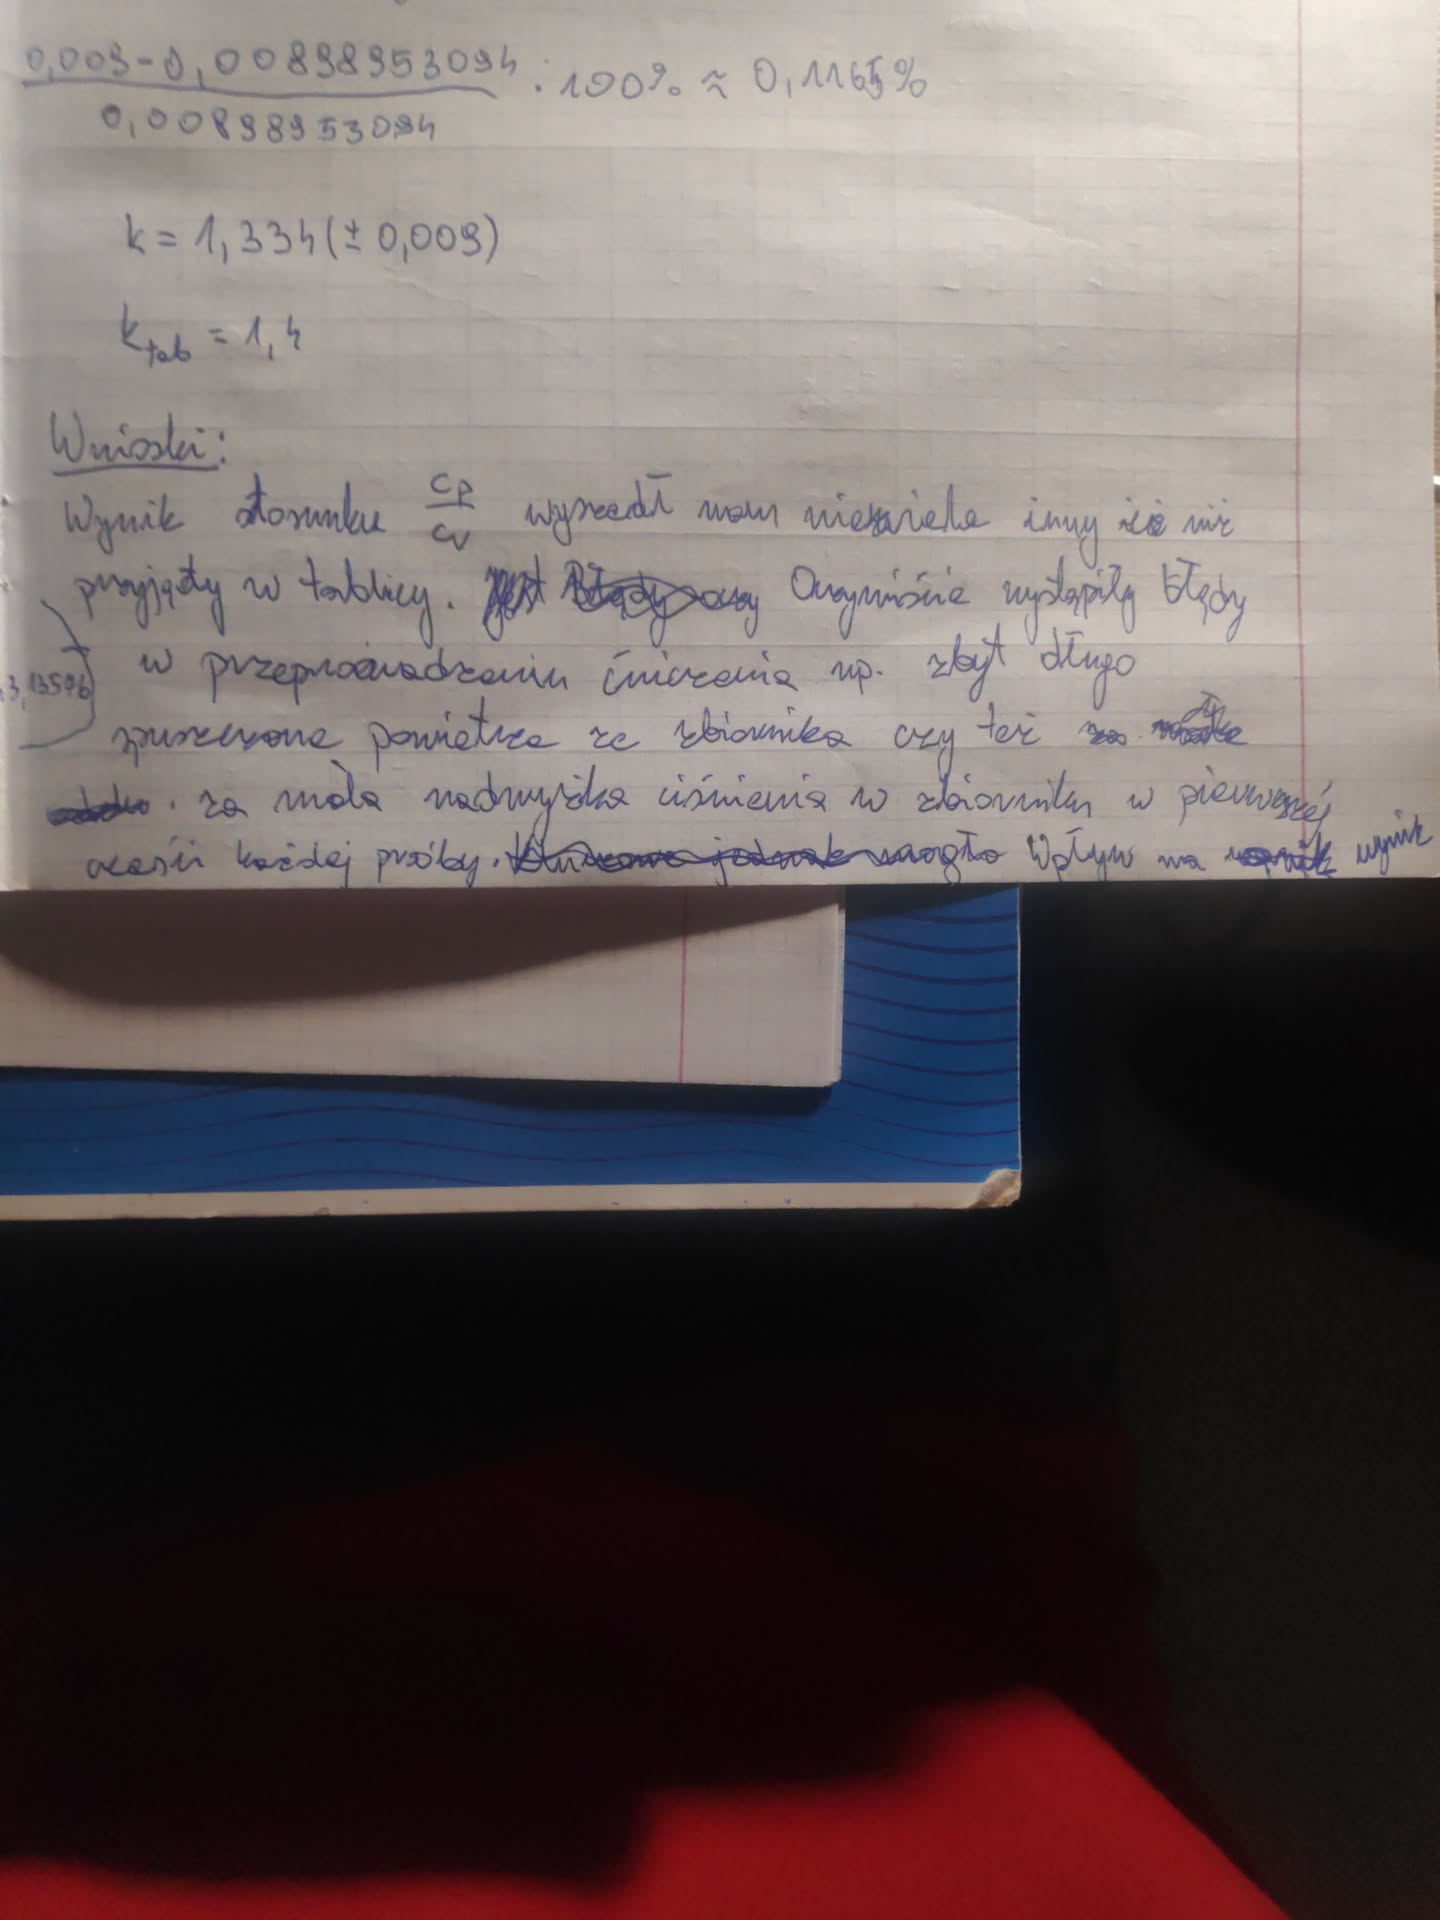 0,009-0,00898953094
—————————— · 100% ≈ 0,1165%
0,00898953094
k = 1,334(± 0,009)
k_tab = 1,4
Wnioski:
Wynik stosunku cp/cv wyszedł nam niewiele inny niż
przyjęty w tablicy. Oczywiście wystąpiły błędy
w przeprowadzeniu ćwiczenia np. zbyt długo
3,13576
spuszczone powietrze ze zbiornika czy też
za mała nadwyżka ciśnienia w zbiorniku w pierwszej
części każdej próby. Wpływ na wynik